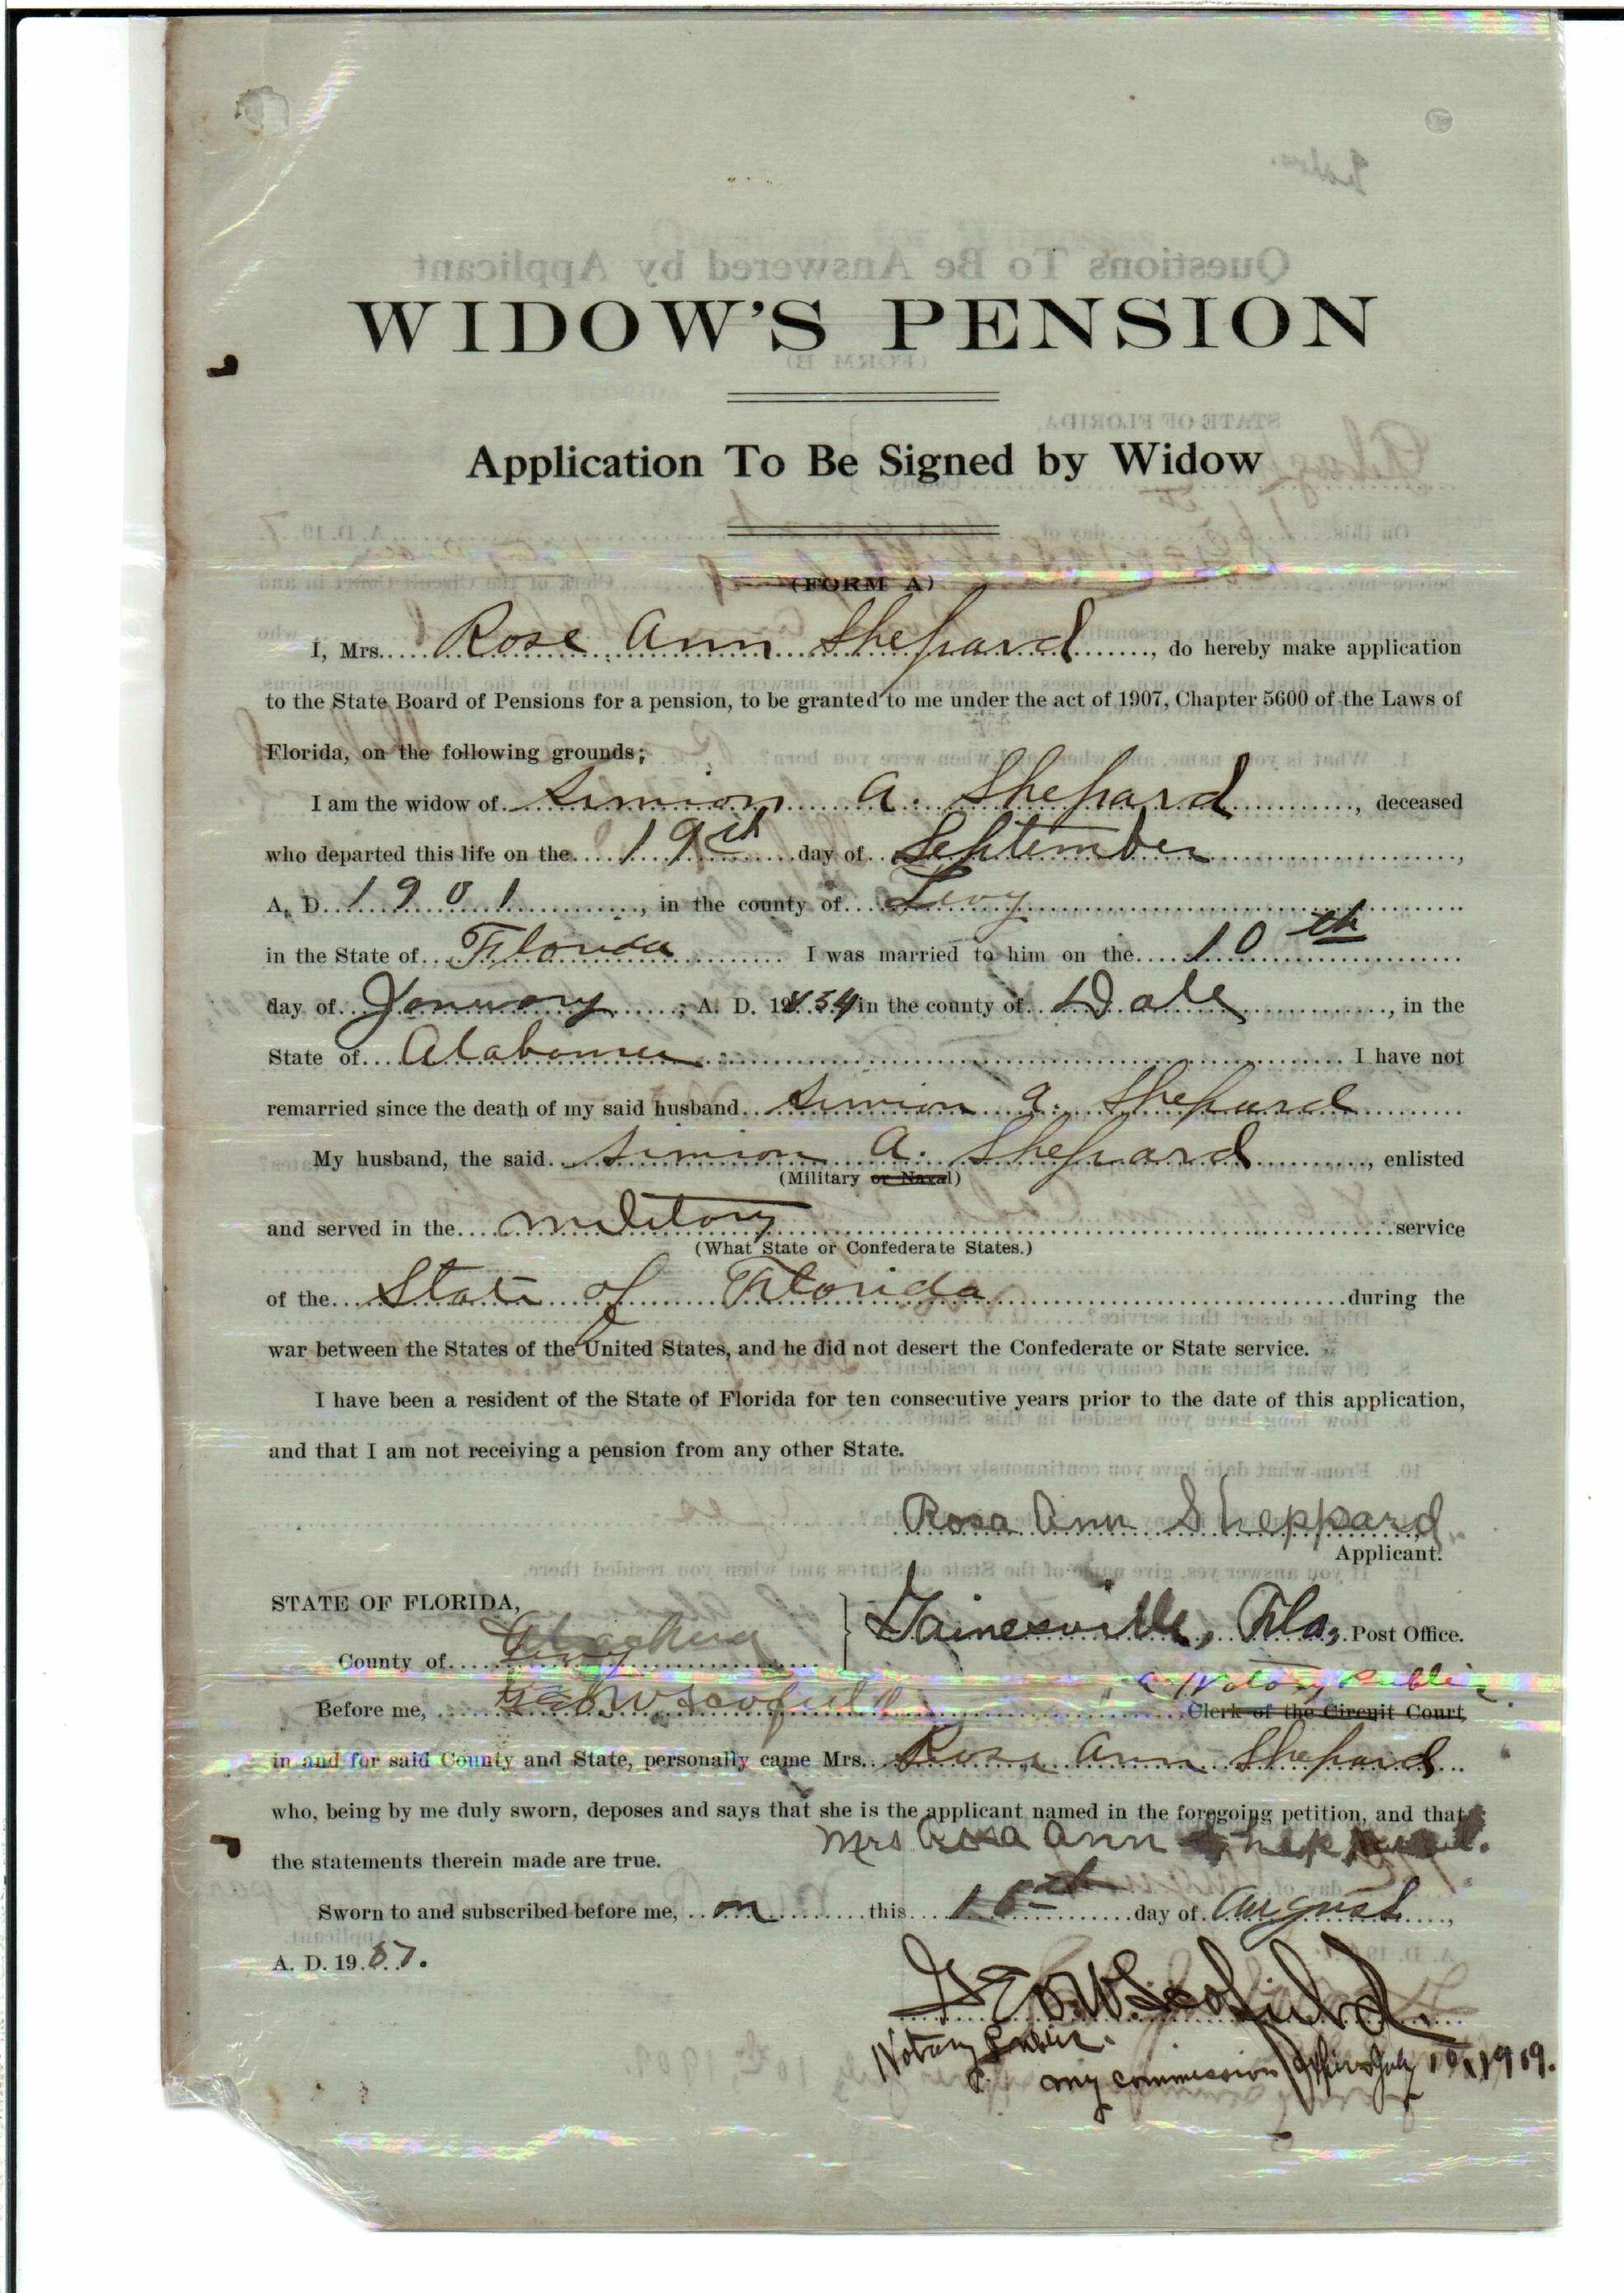 WIDOW'S PENSION
Application To Be Signed by Widow
(FORM A)
I, Mrs. Rose Ann Shepard, do hereby make application
to the State Board of Pensions for a pension, to be granted to me under the act of 1907, Chapter 5600 of the Laws of
Florida, on the following grounds;
I am the widow of Simion A. Shepard, deceased
who departed this life on the 19th day of September,
A. D. 1901, in the county of Levy
in the State of Florida I was married to him on the 10th
day of January, A. D. 1854 in the county of Dale, in the
State of Alabama I have not
remarried since the death of my said husband Simion A. Shepard
My husband, the said Simion A. Shepard, enlisted
(Military or Naval)
and served in the military service
(What State or Confederate States.)
of the State of Florida during the
war between the States of the United States, and he did not desert the Confederate or State service.
I have been a resident of the State of Florida for ten consecutive years prior to the date of this application,
and that I am not receiving a pension from any other State.
Rosa Ann Sheppard
Applicant.
STATE OF FLORIDA,
County of Alachua
Gainesville, Fla, Post Office.
a Notary Public
Before me, Geo W Scofield Clerk of the Circuit Court
in and for said County and State, personally came Mrs. Rose Ann Shepard
who, being by me duly sworn, deposes and says that she is the applicant named in the foregoing petition, and that
the statements therein made are true.
Mrs Rosa Ann
Sworn to and subscribed before me, on this day of August,
A. D. 1907.
Geo. W. Scofield
Notary Public.
my commission Expires July